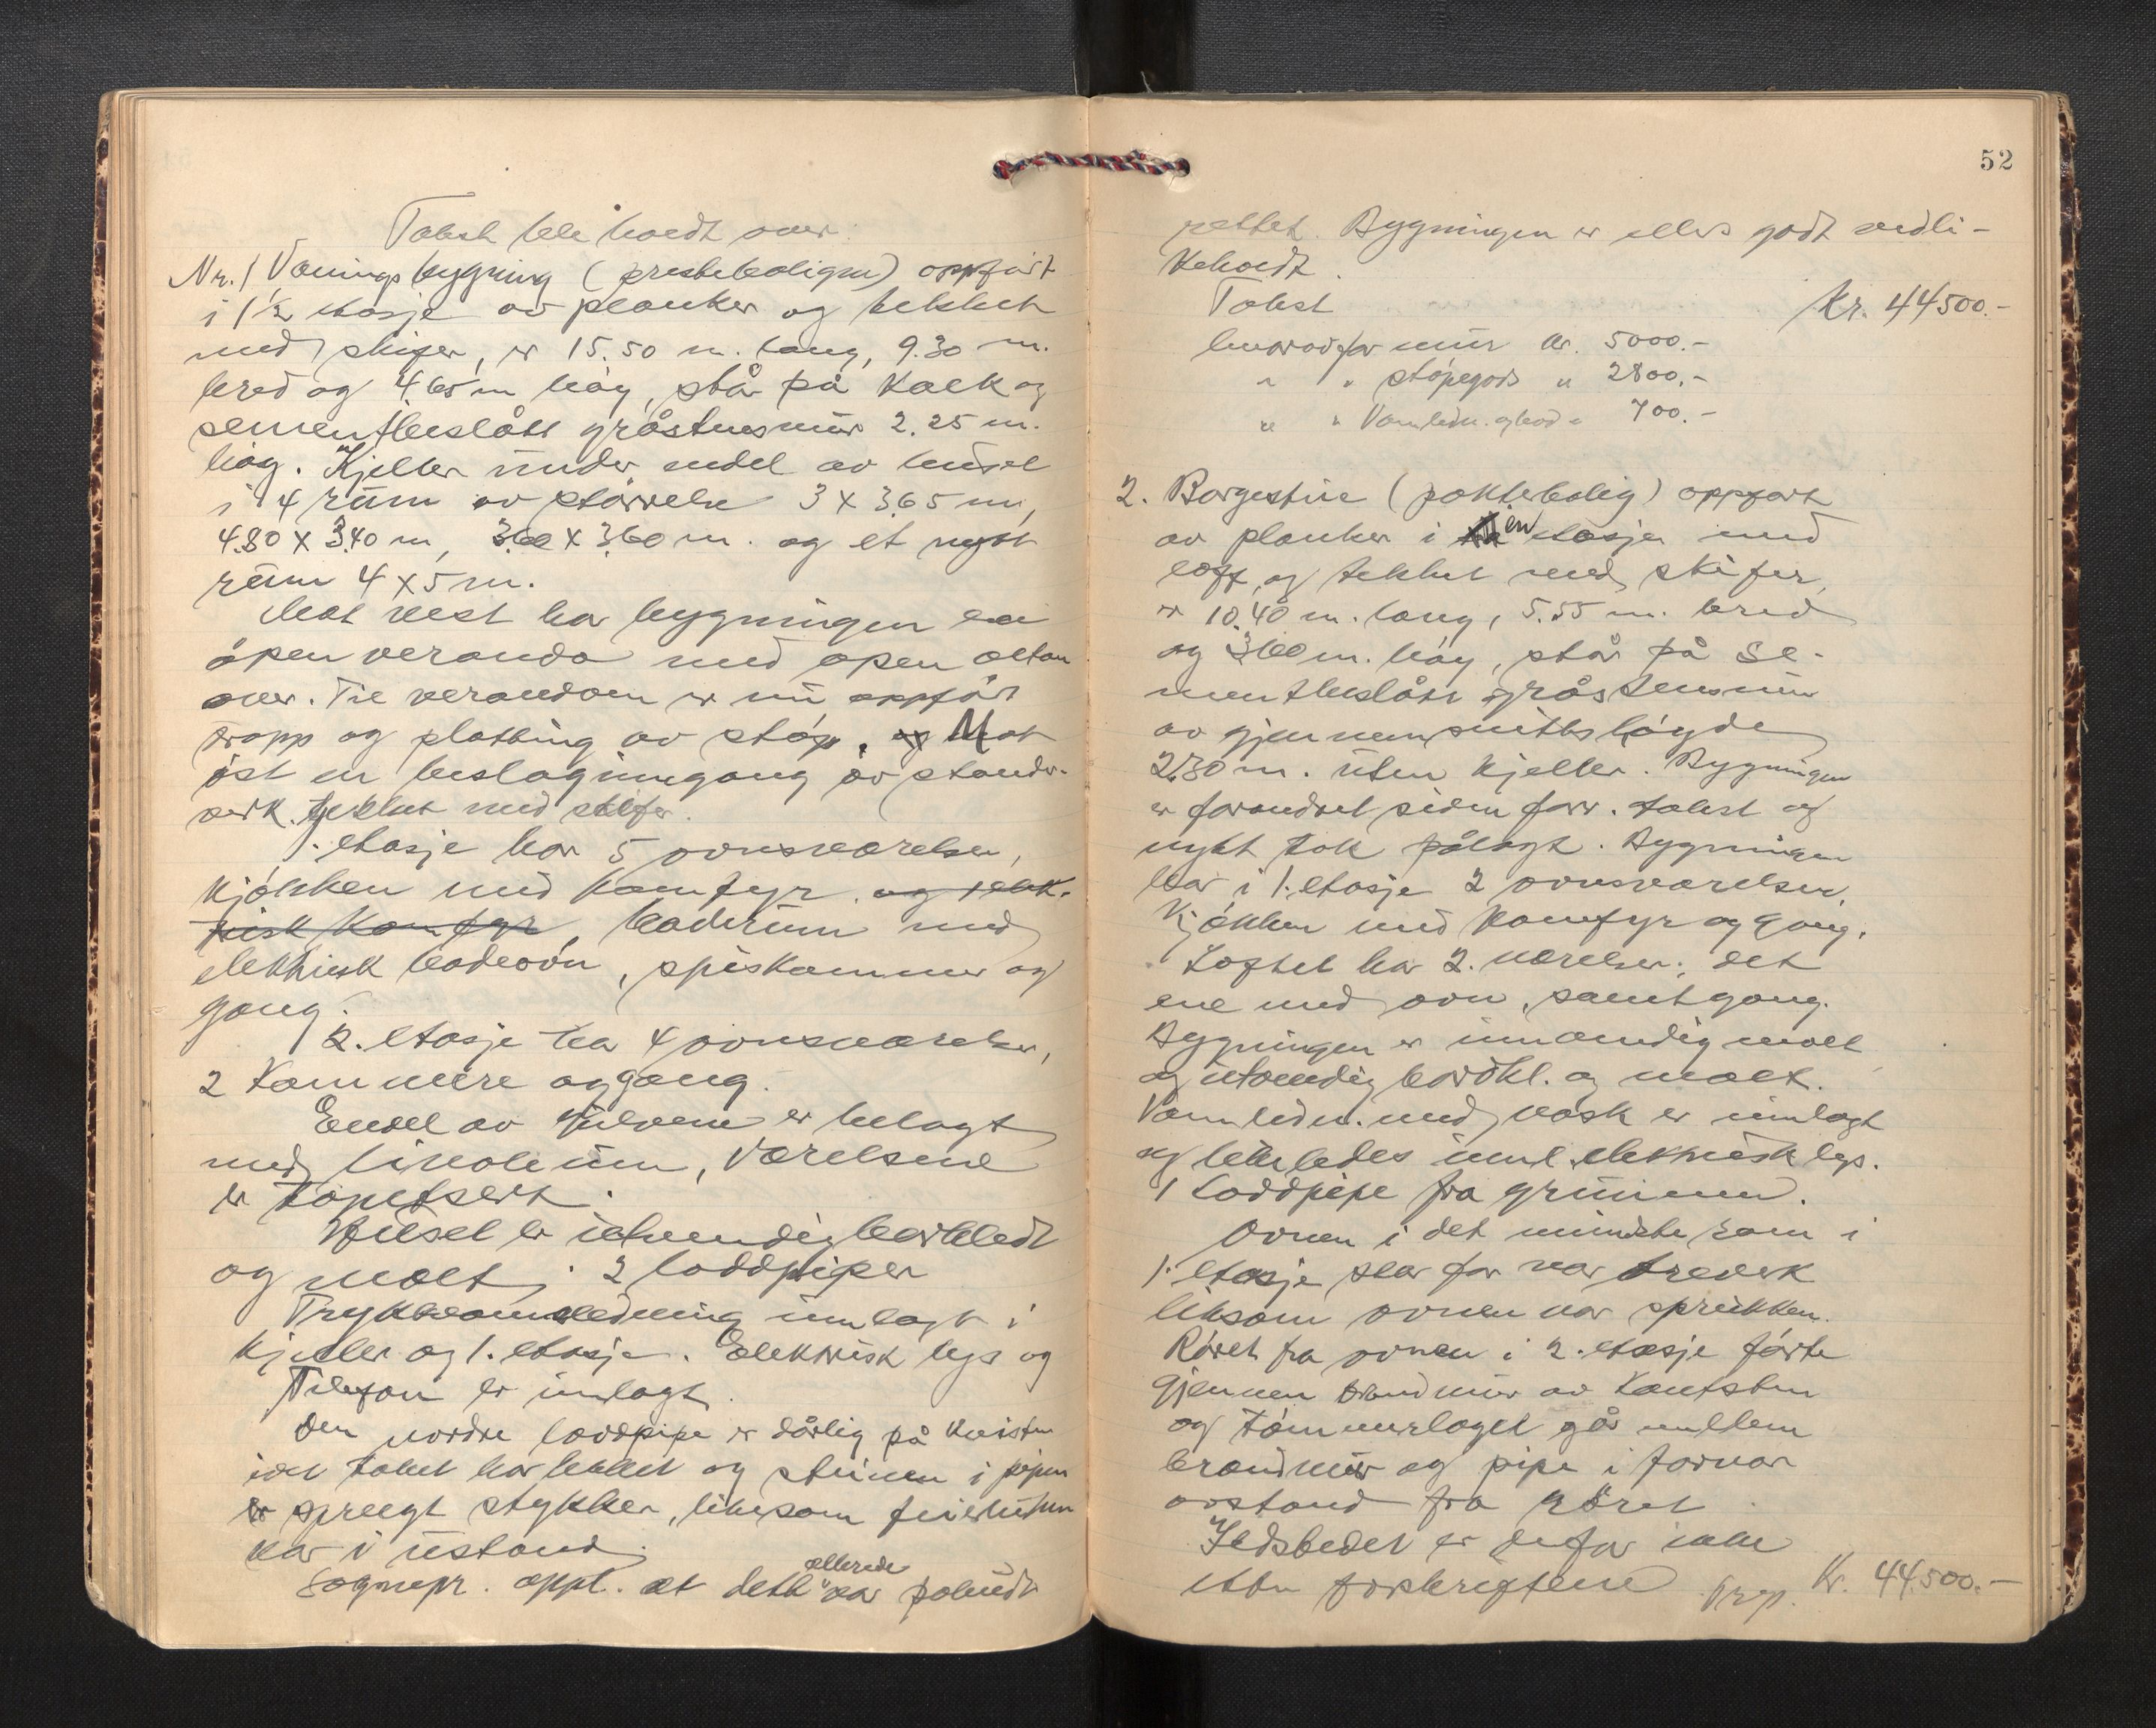 Takst ble holdt over:
Nr. 1 Våningsbygning (presteboligen) oppført
i 1½ etasje av planker og tekket
med skifer, er 15.50 m. lang, 9.30 m.
bred og 4.65 m høy, står på kalk og
sementbeslått gråstensmur 2.25 m.
høy. Kjeller under endel av huset
i 4 rum av størrelse 3 x 3.65 m,
4.80 x 3.40 m, 3.60 x 3.60 m. og et nytt
rum 4 x 5 m.
Mot vest har bygningen en
åpen veranda med open altan
over. Til verandaen er nu oppført
trapp og platting av støp. og Mot
øst en beslaginngang av stender-
verk tekket med skifer.
1. etasje har 5 ovnsværelser,
kjøkken med komfyr. og elek-
trisk komfyr, baderum med
elektrisk badeovn, spiskammer og
gang.
2. etasje har 4 ovnsværelser,
2 kammere og gang.
Endel av gulvene er belagt
med linoleum, værelsene
er tapetsert.
Huset er utvendig bordkledt
og malt; 2 loddpiper
Trykkvannsledning innlagt i
kjeller og 1. etasje. Elektrisk lys og
Telefon er innlagt.
Den nordre loddpipe er dårlig på kvisten
idet taket har lekket og stenen i pipen
er sprengt stykker, likesom feierluken
var i ustand.
Sognepr. oppl. at dette allerede var påbudt
52
rettet. Bygningen er ellers godt vedli-
keholdt.
Takst Kr. 44500.-
hvorav for mur kr. 5000.-
" " støpegods " 2800.-
" " Vannledn. og bad " 700.-
2. Borgestue (pakterbolig) oppført
av planker i en etasje med
loft, og tekket med skifer,
er 10.40 m. lang, 5.55 m. bred
og 3.60 m. høy, står på se-
mentbeslått gråstensmur
av gjennemsnittshøyde
2.30 m. uten kjeller. Bygningen
er forandret siden forr. takst og
nytt tak pålagt. Bygningen
har i 1. etasje 2 ovnsværelser,
kjøkken med komfyr og gang.
Loftet har 2. værelser; det
ene med ovn, samt gang.
Bygningen er innvendig malt
og utvendig bordkl. og malt.
Vannledn. med vask er innlagt
og likeledes innl. elektrisk lys.
1 loddpipe fra grunnen.
Ovnen i det minste rom i
1. etasje står for nær treverk
likesom ovnen var sprukken.
Røret fra ovnen i 2. etasje førte
gjennem brandmur av kantsten
og tømmerlaget går mellem
brandmur og pipe i for nær
avstand fra røret.
Ildstedet er derfor ikke
etter forskriftene Trsp. Kr. 44.500.-